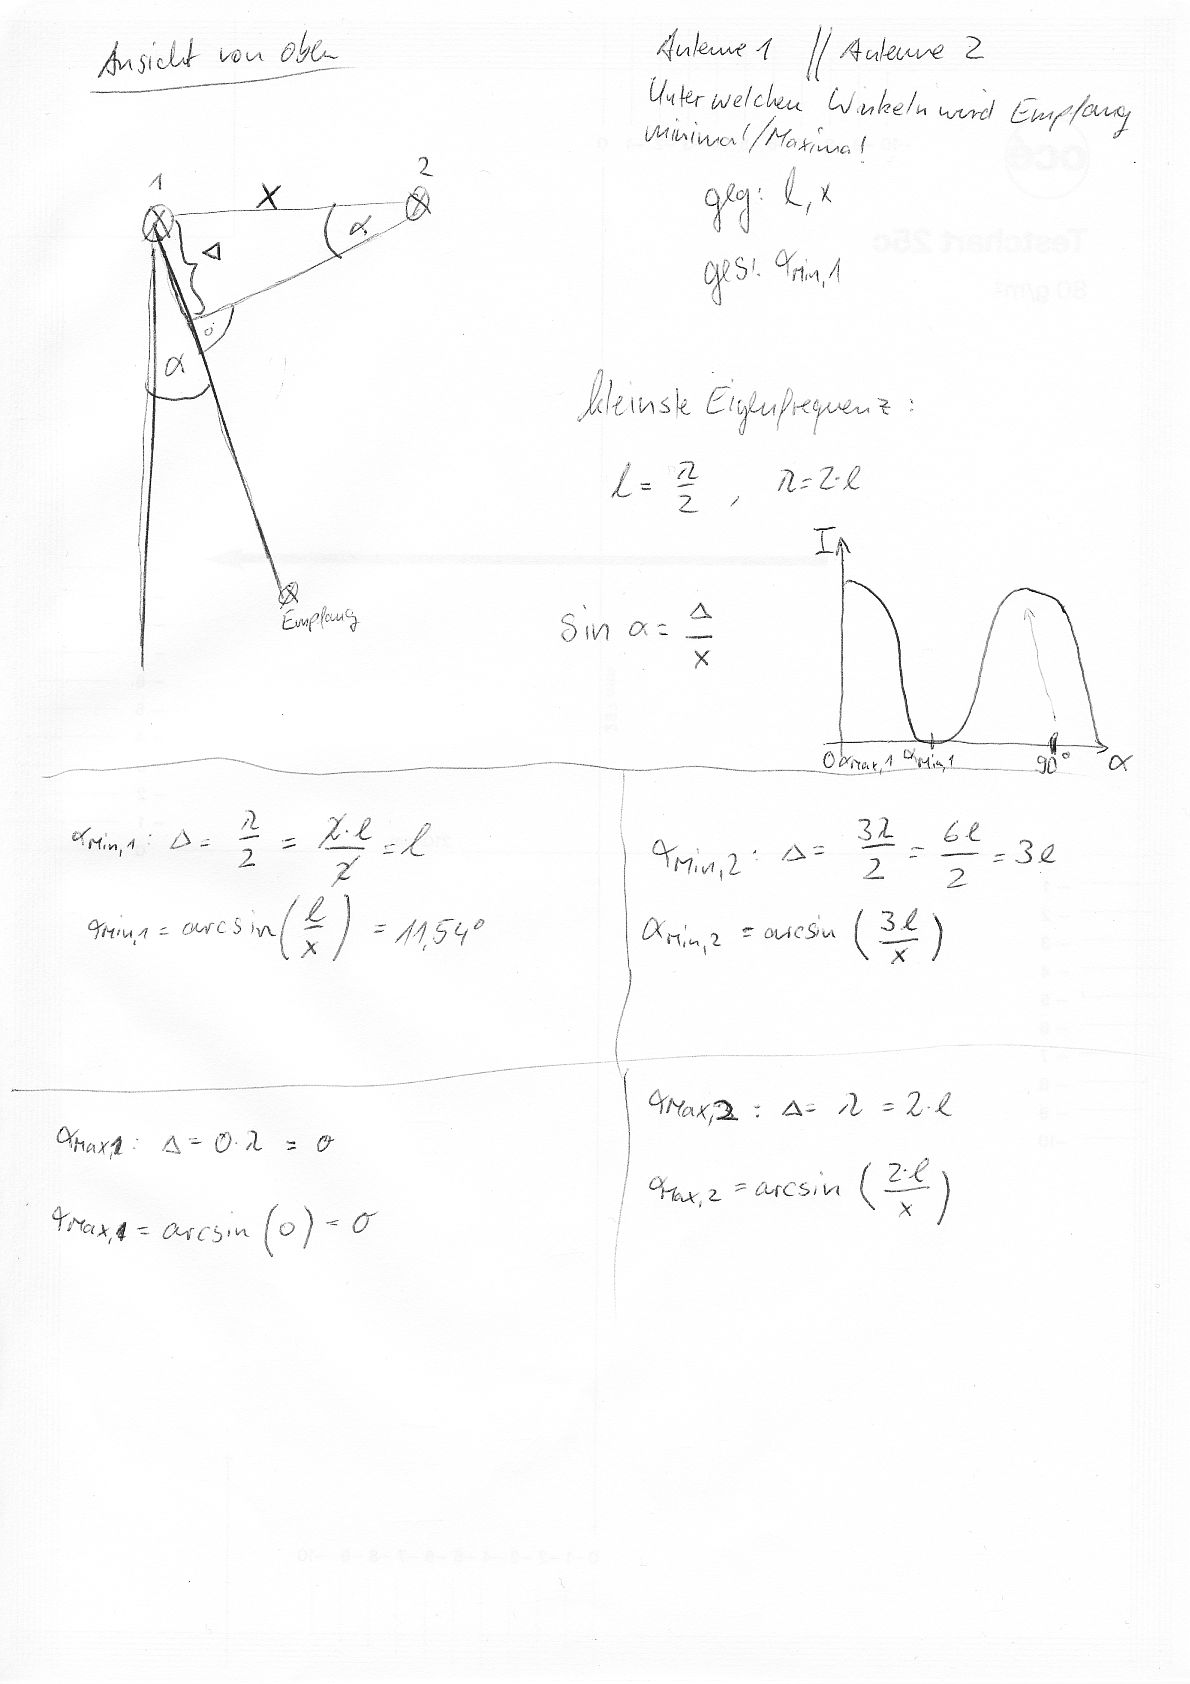 Ansicht von oben
Antenne 1 || Antenne 2
Unter welchen Winkeln wird Empfang
minimal/Maximal
geg: l, x
ges: αMin,1
1
X
2
α
Δ
α
Empfang
kleinste Eigenfrequenz:
l = λ/2 , λ=2·l
sin α = Δ/x
I
0 αMax,1 αMin,1 90° α
αMin,1: Δ = λ/2 = 2·l/2 = l
αMin,1 = arcsin(l/x) = 11,54°
αMin,2: Δ = 3λ/2 = 6l/2 = 3l
αMin,2 = arcsin(3l/x)
αMax,1: Δ = 0·λ = 0
αMax,1 = arcsin(0) = 0
αMax,2: Δ = λ = 2·l
αMax,2 = arcsin(2·l/x)